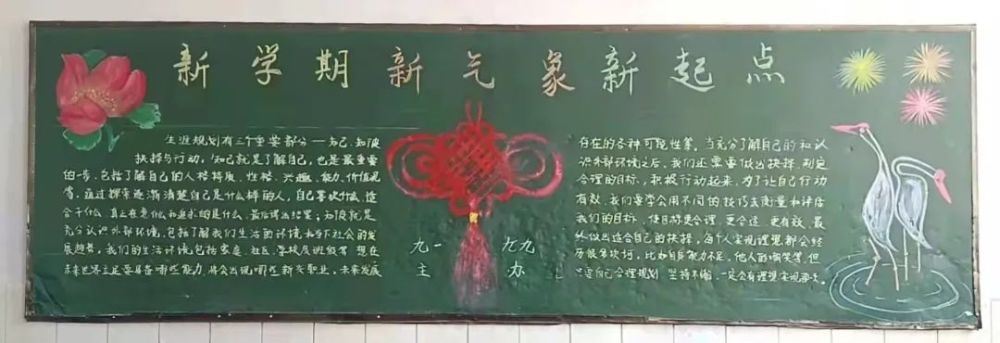 新学期新气象新起点
生涯规划有三个重要部分—知己、知彼
抉择与行动，知己就是了解自己，也是最重要
的一步，包括了解自己的人格特质、性格、兴趣、能力、价值观
等，通过探索逐渐清楚自己是什么样的人，自己喜欢什么，适
合干什么，真正在意什么和追求的是什么，最后得出结果；知彼就是
充分认识外部环境，包括了解我们生活的环境和当下社会的发
展趋势，我们的生活环境包括家庭、社区、学校及班级等，想在
未来世界立足需具备哪些能力，将会出现哪些新兴职业，未来发展
九一
主
九九
办
存在的各种可能性等，当充分了解自己的和认
识外部环境之后，我们还需要做出抉择，制定
合理的目标，积极行动起来，为了让自己行动
有效，我们要学会用不同的技巧去衡量和评估
我们的目标，使目标更合理，更合适，更有效，最
终做出适合自己的抉择，每个人实现理想都会经
历很多坎坷，比如自身能力不足，他人的嘲笑等，但
自己合理规划，坚持不懈，一定会有理想实现那天。